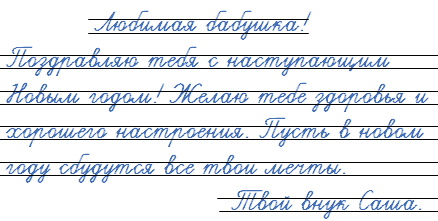 Любимая бабушка!
Поздравляю тебя с наступающим
Новым годом! Желаю тебе здоровья и
хорошего настроения. Пусть в новом
году сбудутся все твои мечты.
Твой внук Саша.